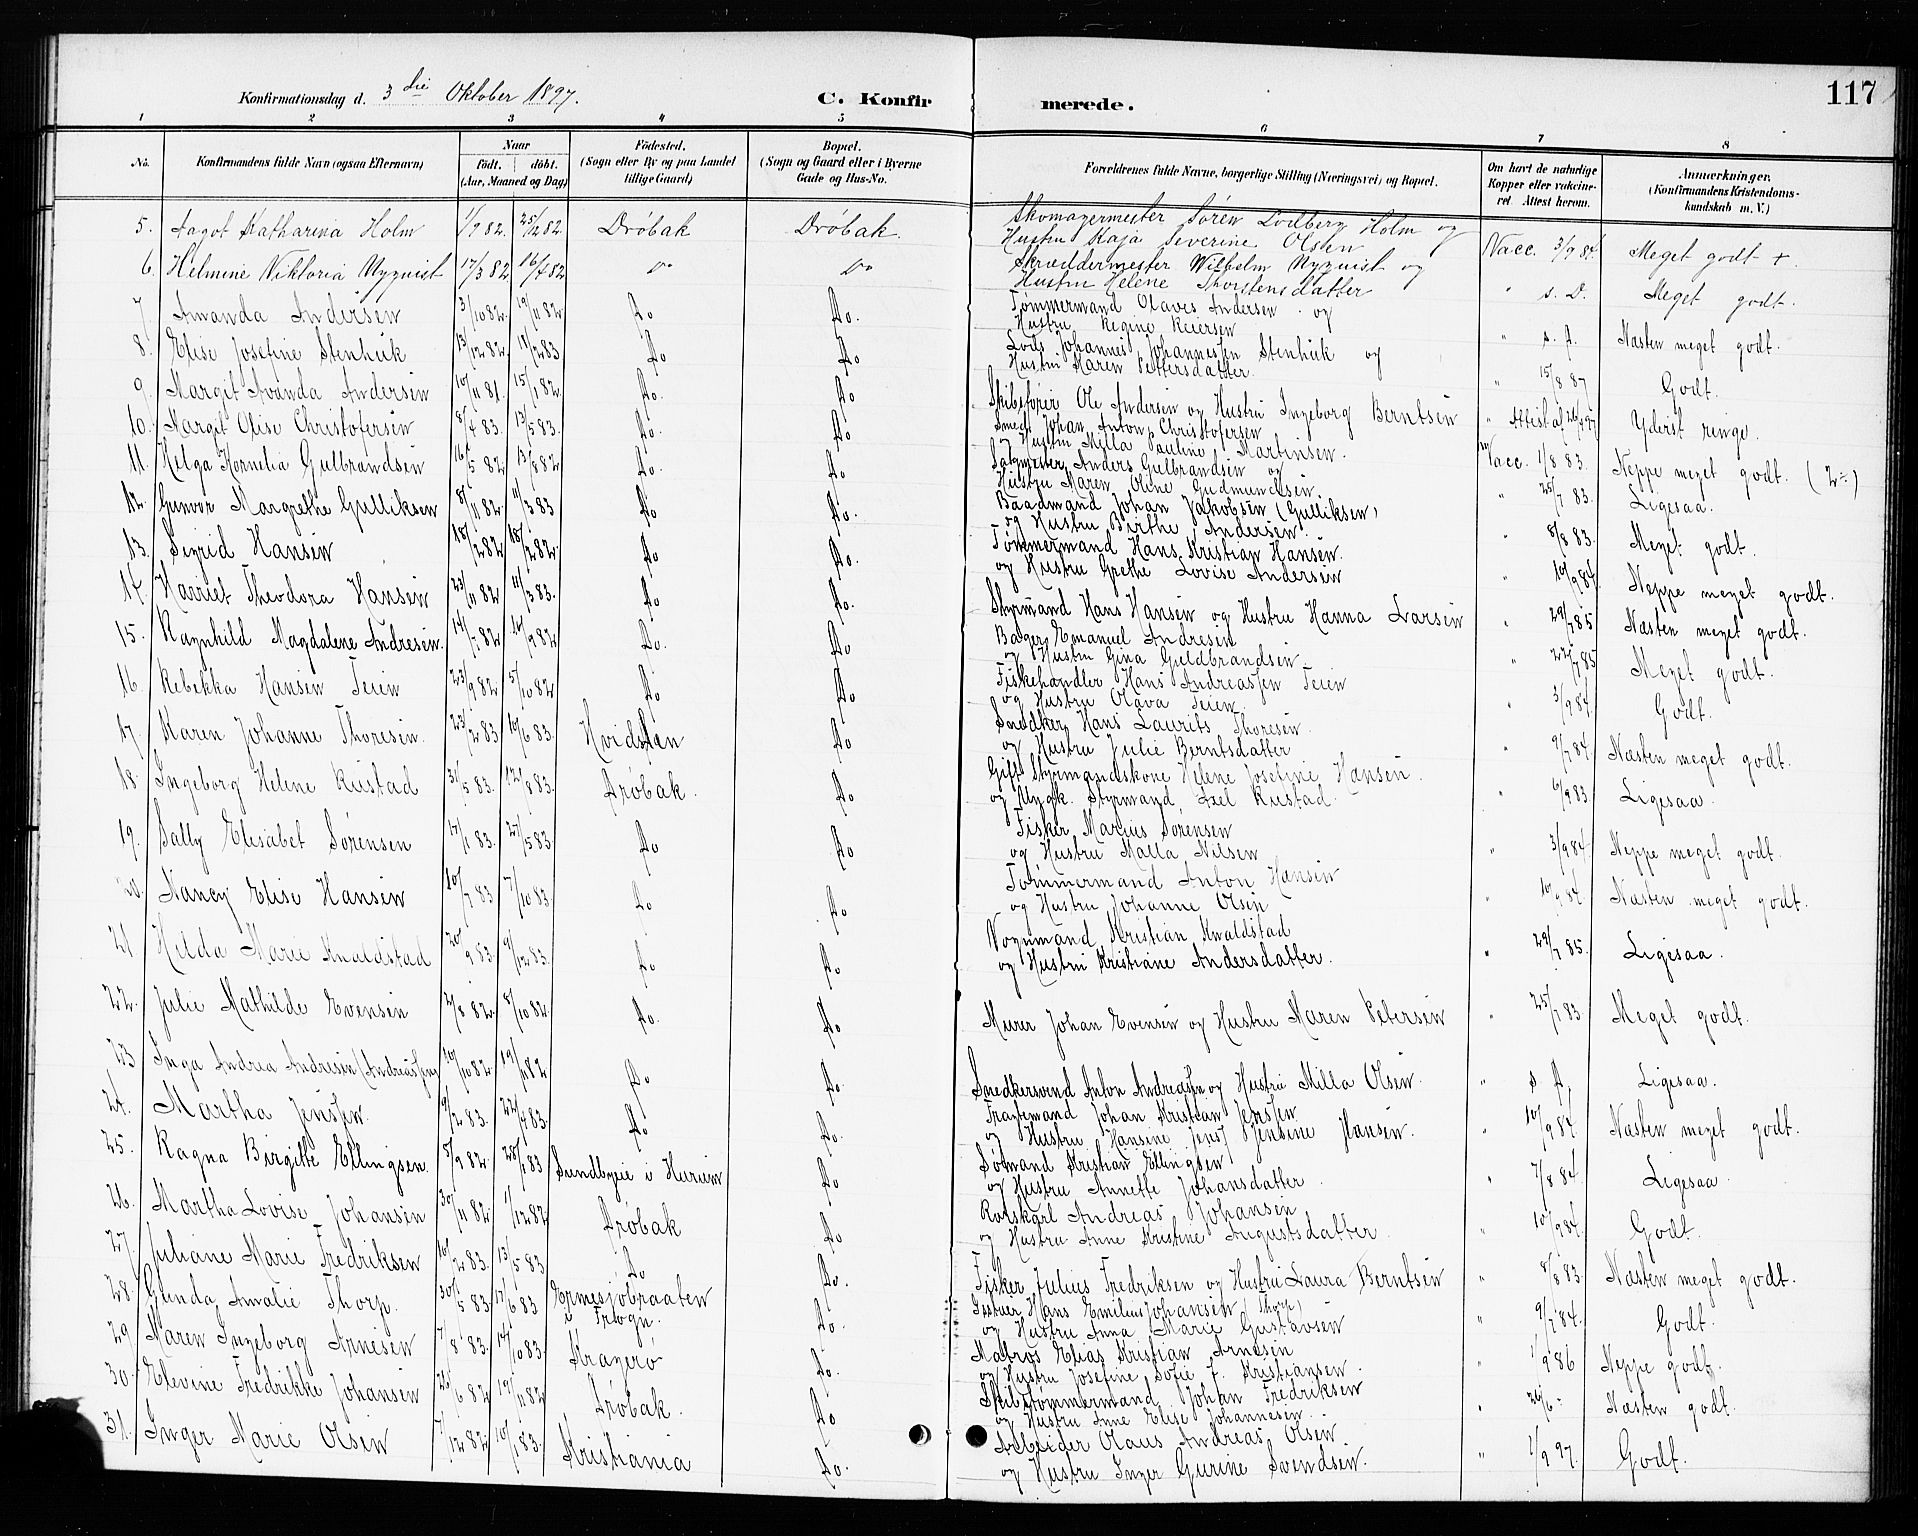 117
Konfirmationsdag d. 3die Oktober 1897. C. Konfirmerede.
1 2 3 4 5 6 7 8
No. Konfirmandens fulde Navn (ogsaa Efternavn) Naar födt. döbt. (Aar, Maaned og Dag) Födested. (Sogn eller By og paa Landet tillige Gaard) Bopæl. (Sogn og Gaard eller i Byerne Gade og Hus-No. Forældrenes fulde Navne, borgerlige Stilling (Næringsvei) og Bopæl. Om havt de naturlige Kopper eller vaksineret. Attest herom. Anmærkninger. (Konfirmandens Kristendomskundskab m. V.)
5. Aagot Katharina Holm 1/9 82. 25/12 82 Drøbak Drøbak. Skomagermester Søren Lodberg Holm og Hustru Kaja Severine Olsen Vacc. 3/9 84. Meget godt +.
6. Helmine Viktoria Nyqvist 17/3 82 16/4 82 do do Skræddermester Wilhelm Nyqvist og Hustru Helene Thorstensdatter " s. D. Meget godt.
7. Amanda Andersen 3/10 82. 19/11 82 do do. Tømmermand Olaves Andersen og Hustru Regine Reiersen " s. d. Næsten meget godt.
8. Elise Josefine Stenhuk 13/12 82. 11/2 83 do do Lods Johannes Johannessen Stenhuk og Hustru Maren Pettersdatter " 15/8 87 Godt.
9. Margit Avanda Andersen 10/11 81. 15/1 82. do. do Skibsfører Ole Andersen og Hustru Ingeborg Berntsen " Attest af 26/4 97 Yderst ringe.
10. Margit Olise Christofersen 8/4 83. 13/5 83. do. do Smed Johan Anton Christofersen og Hustru Milla Pauline Martinsen. Vacc. 1/8 83. Neppe meget godt. (2÷)
11. Helga Kornelia Gulbrandsen 16/5 82 13/8 82 do. do Anders Gulbrandsen og Hustru Maren Oline Gudmundsen. " 25/7 83. Ligesaa.
12. Gunvor Margrethe Gulliksen 8/11 82. 11/3 83 do do. Baadmand Johan Jakobsen (Gulliksen) og Hustru Birthe Andersen. " 8/8 83. Meget godt.
13. Sigrid Hansen 18/2 82 18/2 82. do do. Tømmermand Hans Kristian Hansen. og Hustru Grethe Lovise Andersen " 10/9 84 Neppe meget godt.
14. Harriet Theodora Hansen 23/11 82 11/3 83. do do. Styrmand Hans Hansen og Hustru Hanna Larsen " 29/7 85 Næsten meget godt.
15. Ragnhild Magdalene Andresen. 14/7 82 10/9 82 do. do Bager Emanuel Andresen og Hustru Gina Guldbrandsen " 22/7 85 Meget godt.
16. Rebekka Hansen Teien 23/9 82 5/10 82 do do Fiskehandler Hans Andreassen Teien og Hustru Olava Teien. " 3/9 84. Godt.
17. Karen Johanne Thoresen. 23/2 83 10/6 83. Hvidsten do Snedker Hans Laurits Thoresen og Hustru Julie Berntsdatter " 9/7 84. Næsten meget godt.
18. Ingeborg Helene Rustad 31/5 83. 12/8 83. Drøbak. do Gift Styrmandskone Helene Josefine Hansen. og Ungk. Styrmand, Axel Rustad. " 6/9 83. Ligesaa.
19. Sally Elisabet Sørensen 17/1 83. 27/5 83. do do Fisker Marius Sørensen og Hustru Malla Nilsen " 3/9 84. Neppe meget godt.
20. Nancy Elise Hansen 10/7 83 7/10 83 do do Tømmermand Anton Hansen og Hustru Johanne Olsen " 10/9 84. Næsten meget godt.
21 Hilda Marie Knaldstad 20/9 83. 9/12 83. do do Vognmand Kristian Knaldstad og Hustru Kristiane Andersdatter. " 29/7 85. Ligesaa.
22. Julie Mathilde Evensen 2/8 82. 8/10 82. do. do Murer Johan Evensen og Hustru Maren Petersen " 25/7 83. Meget godt.
23 Inga Andrea Andresen (Andreassen) 10/10 82 do do. Snedkersvend Anton Andreassen og Hustru Milla Olsen. " s. d. Ligesaa.
24. Martha Jenssen. 9/2 83. 22/4 83. do do. Fragtemand Johan Kristian Jenssen og Hustru Hansine Jensine Hansen. " 10/9 84. Næsten meget godt.
25. Ragna Birgitte Ellingsen. 5/9 82. 28/1 83 Sundbyeie i Hurum do Sømand Kristian Ellingsen og Hustru Annette Johansdatter. " 7/8 84. Ligesaa.
26. Martha Lovise Johansen 30/11 82. 1/12 82 Drøbak do Andreas Johansen og Hustru Anne Kristine Augustsdatter. " 10/9 84. Godt.
27. Juliane Marie Fredriksen 10/2 83. 13/5 83 do do. Fisker Julius Fredriksen og Hustru Laura Berntsen " 8/8 83. Næsten meget godt.
28. Gunda Amalie Thorp. 30/5 83 17/6 83 Ermesjøbraaten i Frogn. do. Hans Emilius Johansen (Thorp) og Hustru Anna Marie Gustavsen " 9/7 84. Godt.
29 Maren Ingeborg Arnesen 7/8 83. 14/10 83. Kragerø do. Matros Elias Kristian Arnesen og Hustru Josefine Sofie F. Kristiansen. " 1/9 86 Neppe godt.
30. Elevine Fredrikke Johansen 26/6 82 19/11 82 Drøbak. do Skibstømmermand Johan Fredriksen og Hustru Anne Elise Johannesen. " 26/6 - Næsten godt.
31. Inger Marie Olsen 7/12 82. 10/1 83. Kristiania do. Arbeider Olaus Andreas Olsen og Hustru Inger Gurine Svendsen. " 1/9 97. Godt.